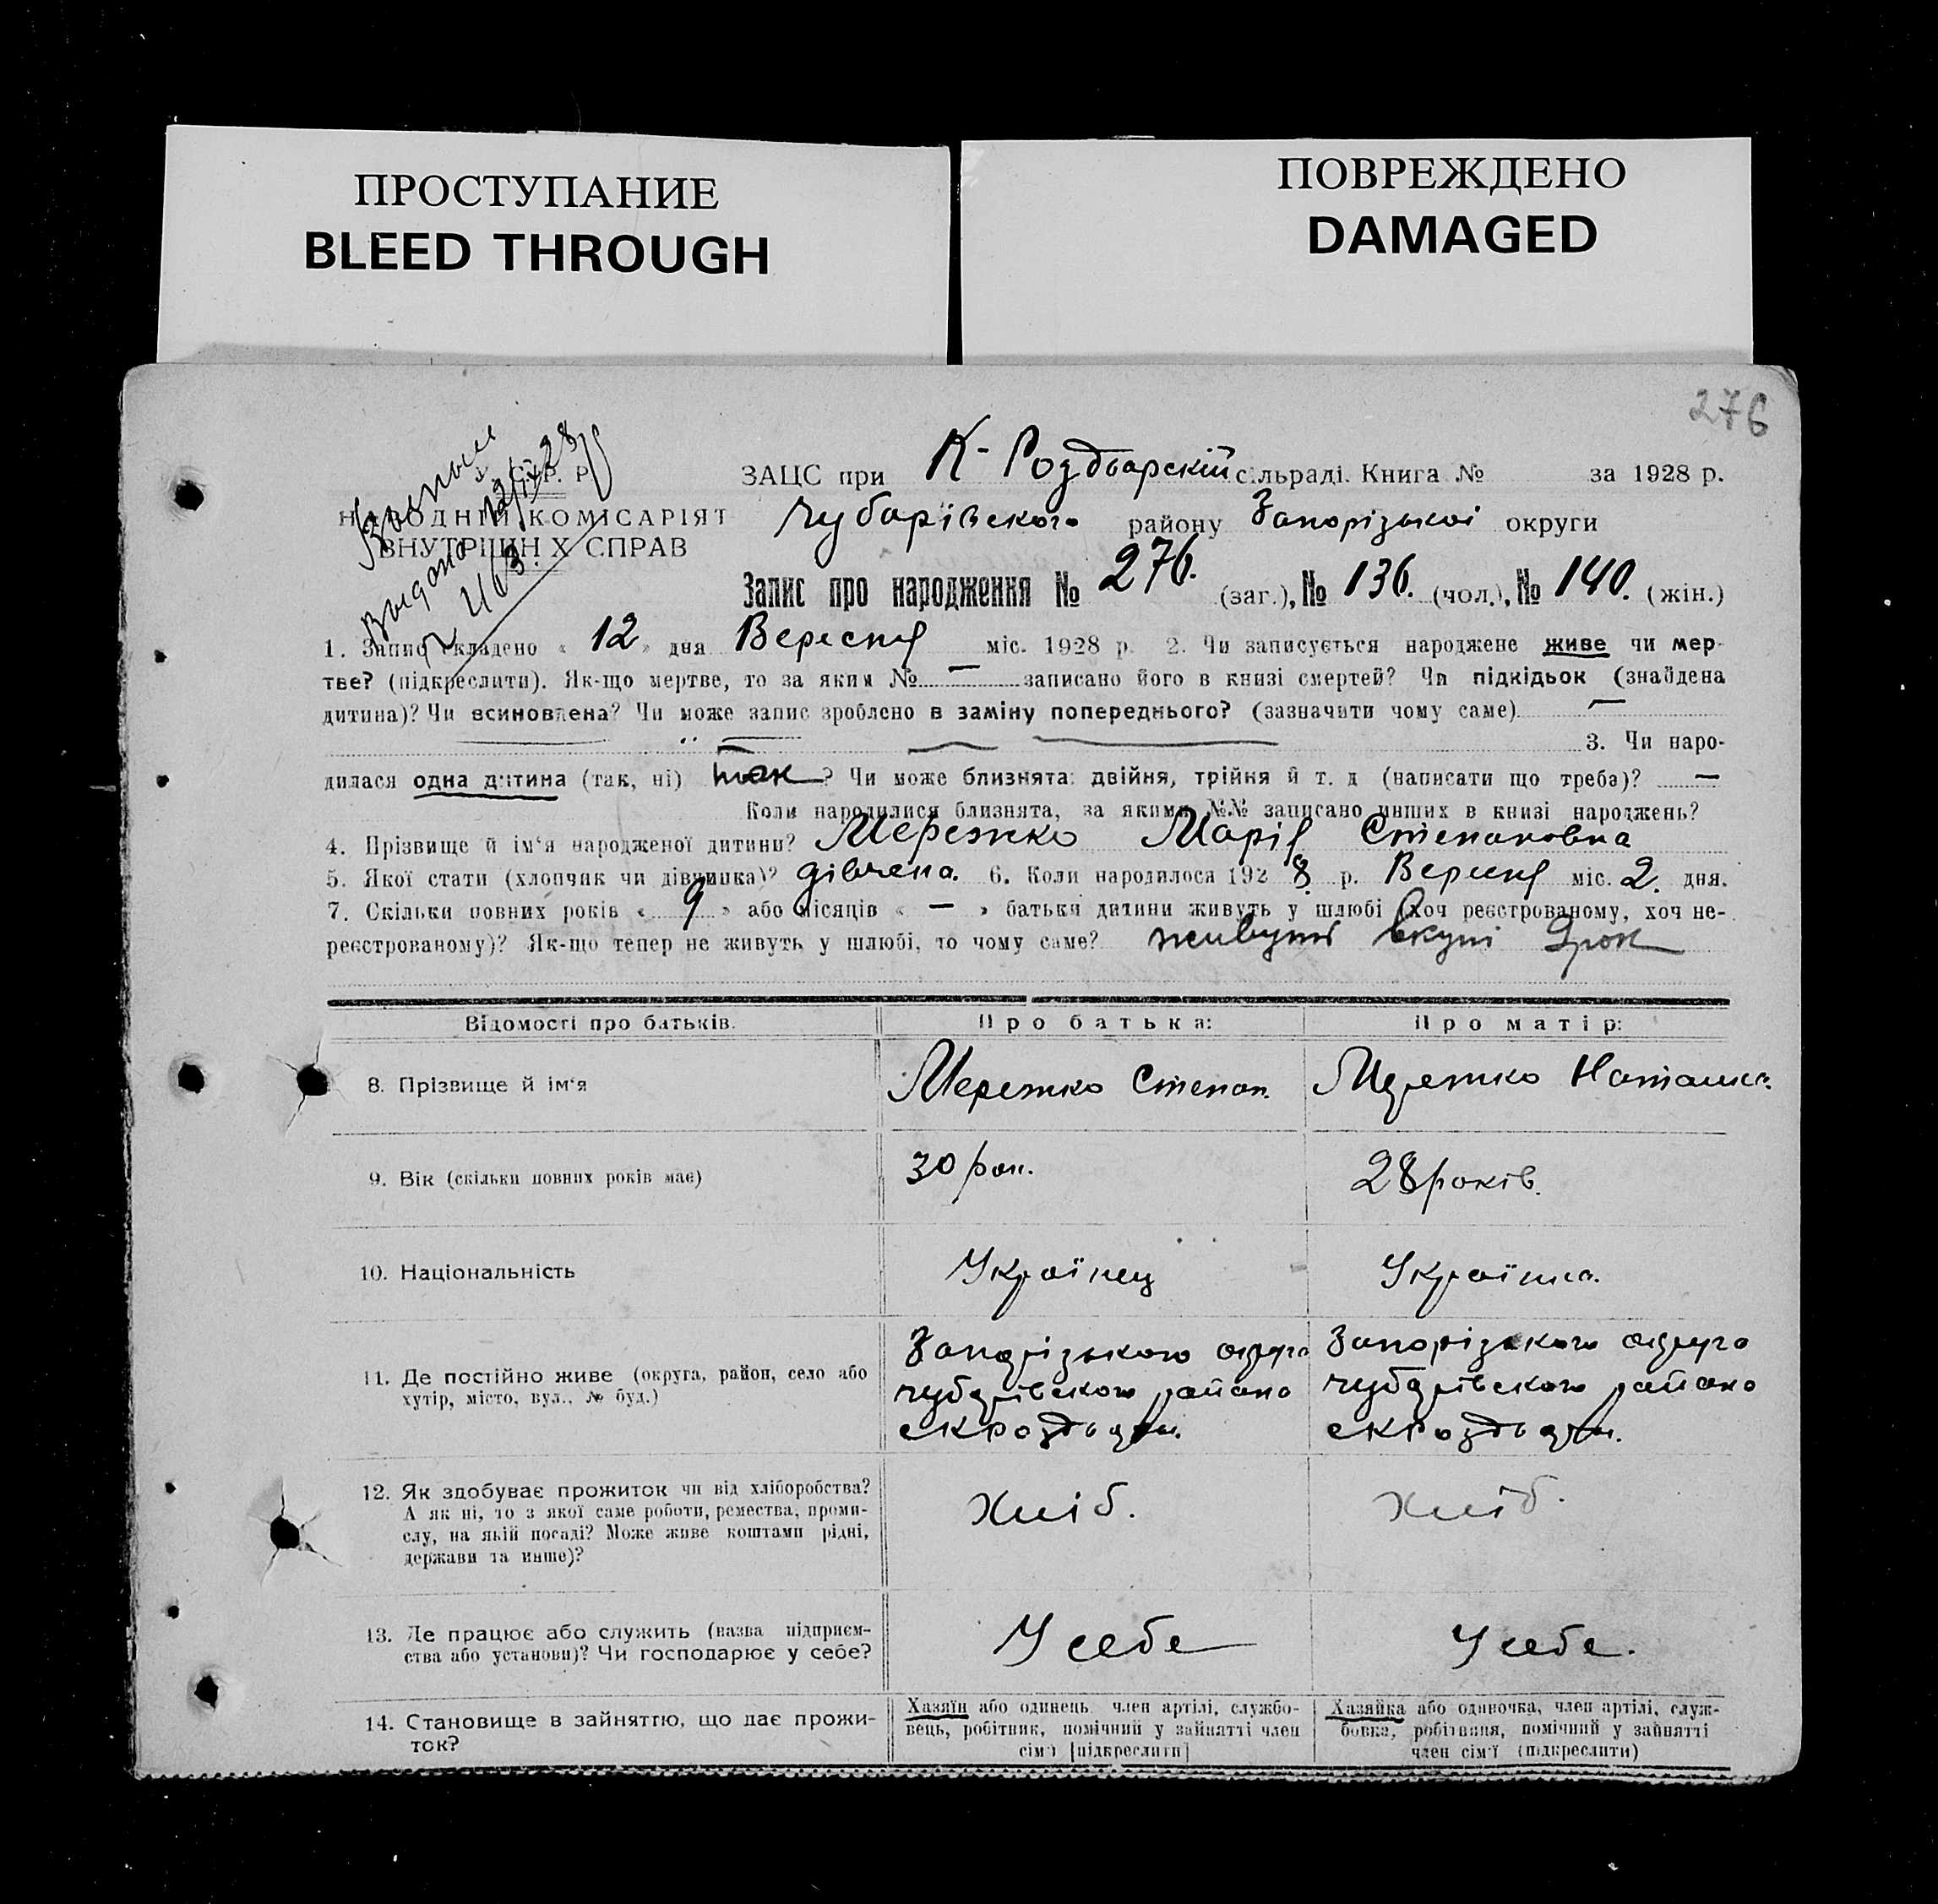 ПРОСТУПАНИЕ
BLEED THROUGH
ПОВРЕЖДЕНО
DAMAGED
276
С.Р.Р.
НАРОДНІЙ КОМІСАРІЯТ
ВНУТРІШНІХ СПРАВ
12/IX 28
ЗАЦС при К-Роздварскій сільраді. Книга № за 1928 р.
Чубарівского району Запорізької округи
Запис про народження № 276. (заг.), № 136. (чол.), № 140. (жін.)
1. Запис складено « 12 » дня Вересня міс. 1928 р. 2. Чи записується народжене живе чи мер-
тве? (підкреслити). Як-що мертве, то за яким № — записано його в книзі смертей? Чи підкідьок (знайдена
дитина)? Чи всиновлена? Чи може запис зроблено в заміну попереднього? (зазначити чому саме) —
3. Чи наро-
дилася одна дитина (так, ні) так? Чи може близнята: двійня, трійня й т. д (написати що треба)? —
Коли народилися близнята, за якими №№ записано инших в книзі народжень?
4. Прізвище й ім'я народженої дитини? Мережко Марія Степановна
5. Якої стати (хлопчик чи дівчинка)? дівчена. 6. Коли народилося 1928 р. Вересня міс. 2. дня.
7. Скільки повних років « 9 » або місяців « — » батьки дитини живуть у шлюбі (хоч реєстрованому, хоч не-
реєстрованому)? Як-що тепер не живуть у шлюбі, то чому саме? живуть вкупі 9 рок
Відомості про батьків. Про батька: Про матір:
8. Прізвище й ім'я Мережко Степан. Мережко Наташка.
9. Вік (скільки повних років має) 30 рок. 28 років.
10. Національність Українец Українка.
11. Де постійно живе (округа, район, село або
хутір, місто, вул., № буд.)
Запорізького округа
Чубарівского района
Запорізького округа
Чубарівского района
12. Як здобуває прожиток чи від хліборобства?
А як ні, то з якої саме роботи, ремества, проми-
слу, на якій посаді? Може живе коштами рідні,
держави та инше)?
Хліб. Хліб.
13. Де працює або служить (назва підприєм-
ства або установи)? Чи господарює у себе?
У себе У себе.
14. Становище в зайняттю, що дає прожи-
ток?
Хазяїн або одинець, член артілі, службо-
вець, робітник, помічний у зайнятті член
сім'ї [підкреслити]
Хазяйка або одиночка, член артілі, служ-
бовка, робітниця, помічний у зайнятті
член сім'ї (підкреслити)